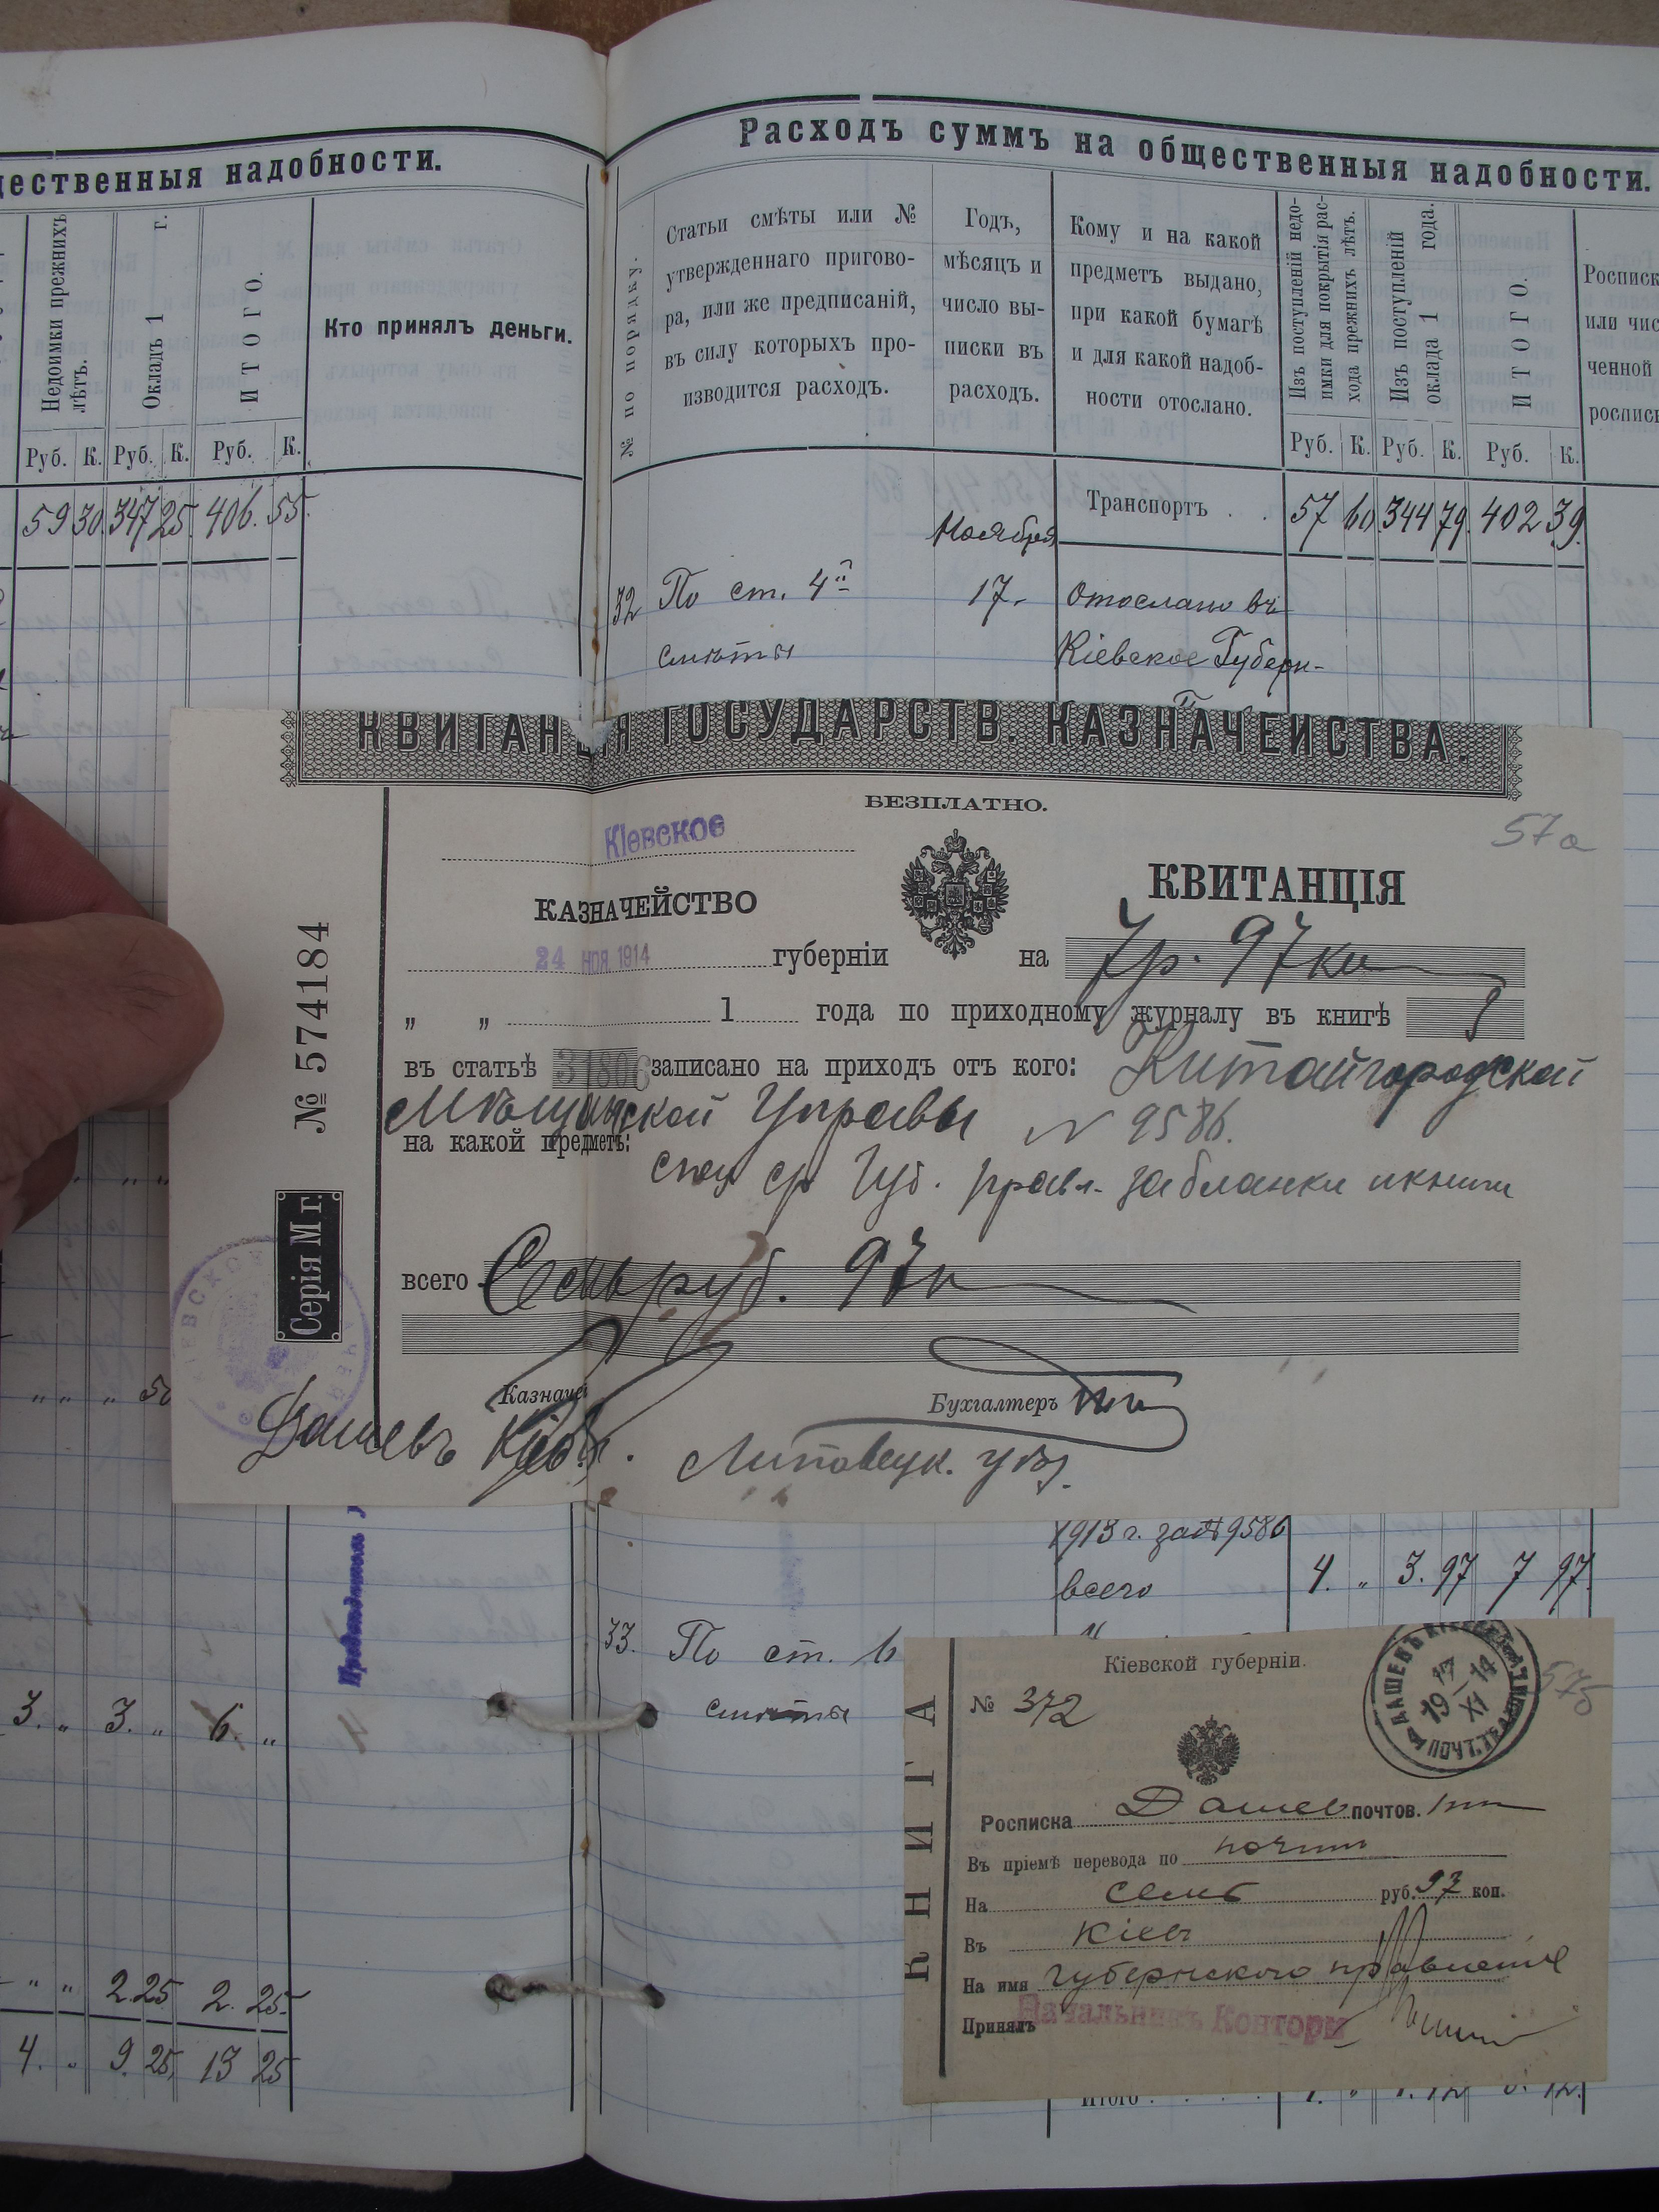 щественныя надобности.
Недоимки прежнихъ лѣтъ.
Окладъ 1 г.
ИТОГО.
Кто принялъ деньги.
Руб. К. Руб. К. Руб. К.
59 30. 347 25. 406. 55.
3. „ 3. „ 6. „
„ „ 2.25 2. 25
4. „ 9. 25, 13 25
Расходъ суммъ на общественныя надобности.
№ по порядку.
Статьи смѣты или №
утвержденнаго пригово-
ра, или же предписаній,
въ силу которыхъ про-
изводится расходъ.
Годъ,
мѣсяцъ и
число вы-
писки въ
расходъ.
Кому и на какой
предметъ выдано,
при какой бумагѣ
и для какой надоб-
ности отослано.
Изъ поступленій недо-
имки для покрытія рас-
хода прежнихъ лѣтъ.
Изъ поступленій
оклада 1 года.
ИТОГО.
Росписк
или чис
ченной
роспис
Руб. К. Руб. К. Руб. К.
Транспортъ . . 57 60. 344 79. 402 39.
Ноября
32 По ст. 4й 17. Отослано въ
смѣты Кіевское Губерн-
КВИТАНЦІЯ ГОСУДАРСТВ. КАЗНАЧЕЙСТВА.
БЕЗПЛАТНО.
57а
Кіевское
КАЗНАЧЕЙСТВО
КВИТАНЦІЯ
24 НОЯ 1914 губерніи на 7р. 97ко
„ „ 1 года по приходному журналу въ книгѣ
въ статьѣ 31806 записано на приходъ отъ кого: Китайгородской
Мѣщанской Управы N 9586.
на какой предметъ:
Губ. правл. за бланки и книги
всего Семь руб. 97к
Казначей
Бухгалтеръ
№ 574184
Серія М г.
Дашевъ Кіев. г. Липовецк. уѣз.
Предсѣдатель
1913 г. за № 9586
всего 4. „ 3. 97 7 97.
33. По ст. 6
смѣты
КНИГА
Кіевской губерніи.
№ 372
57б
ДАШЕВЪ КІЕВ
17 XI 1914
Росписка Дашев почтов.
Въ пріемѣ перевода по почтѣ
На семь руб. 97 коп.
Въ Кіевъ
На имя Губернского правленіе
Принялъ Начальникъ Конторы
Итого . . . .